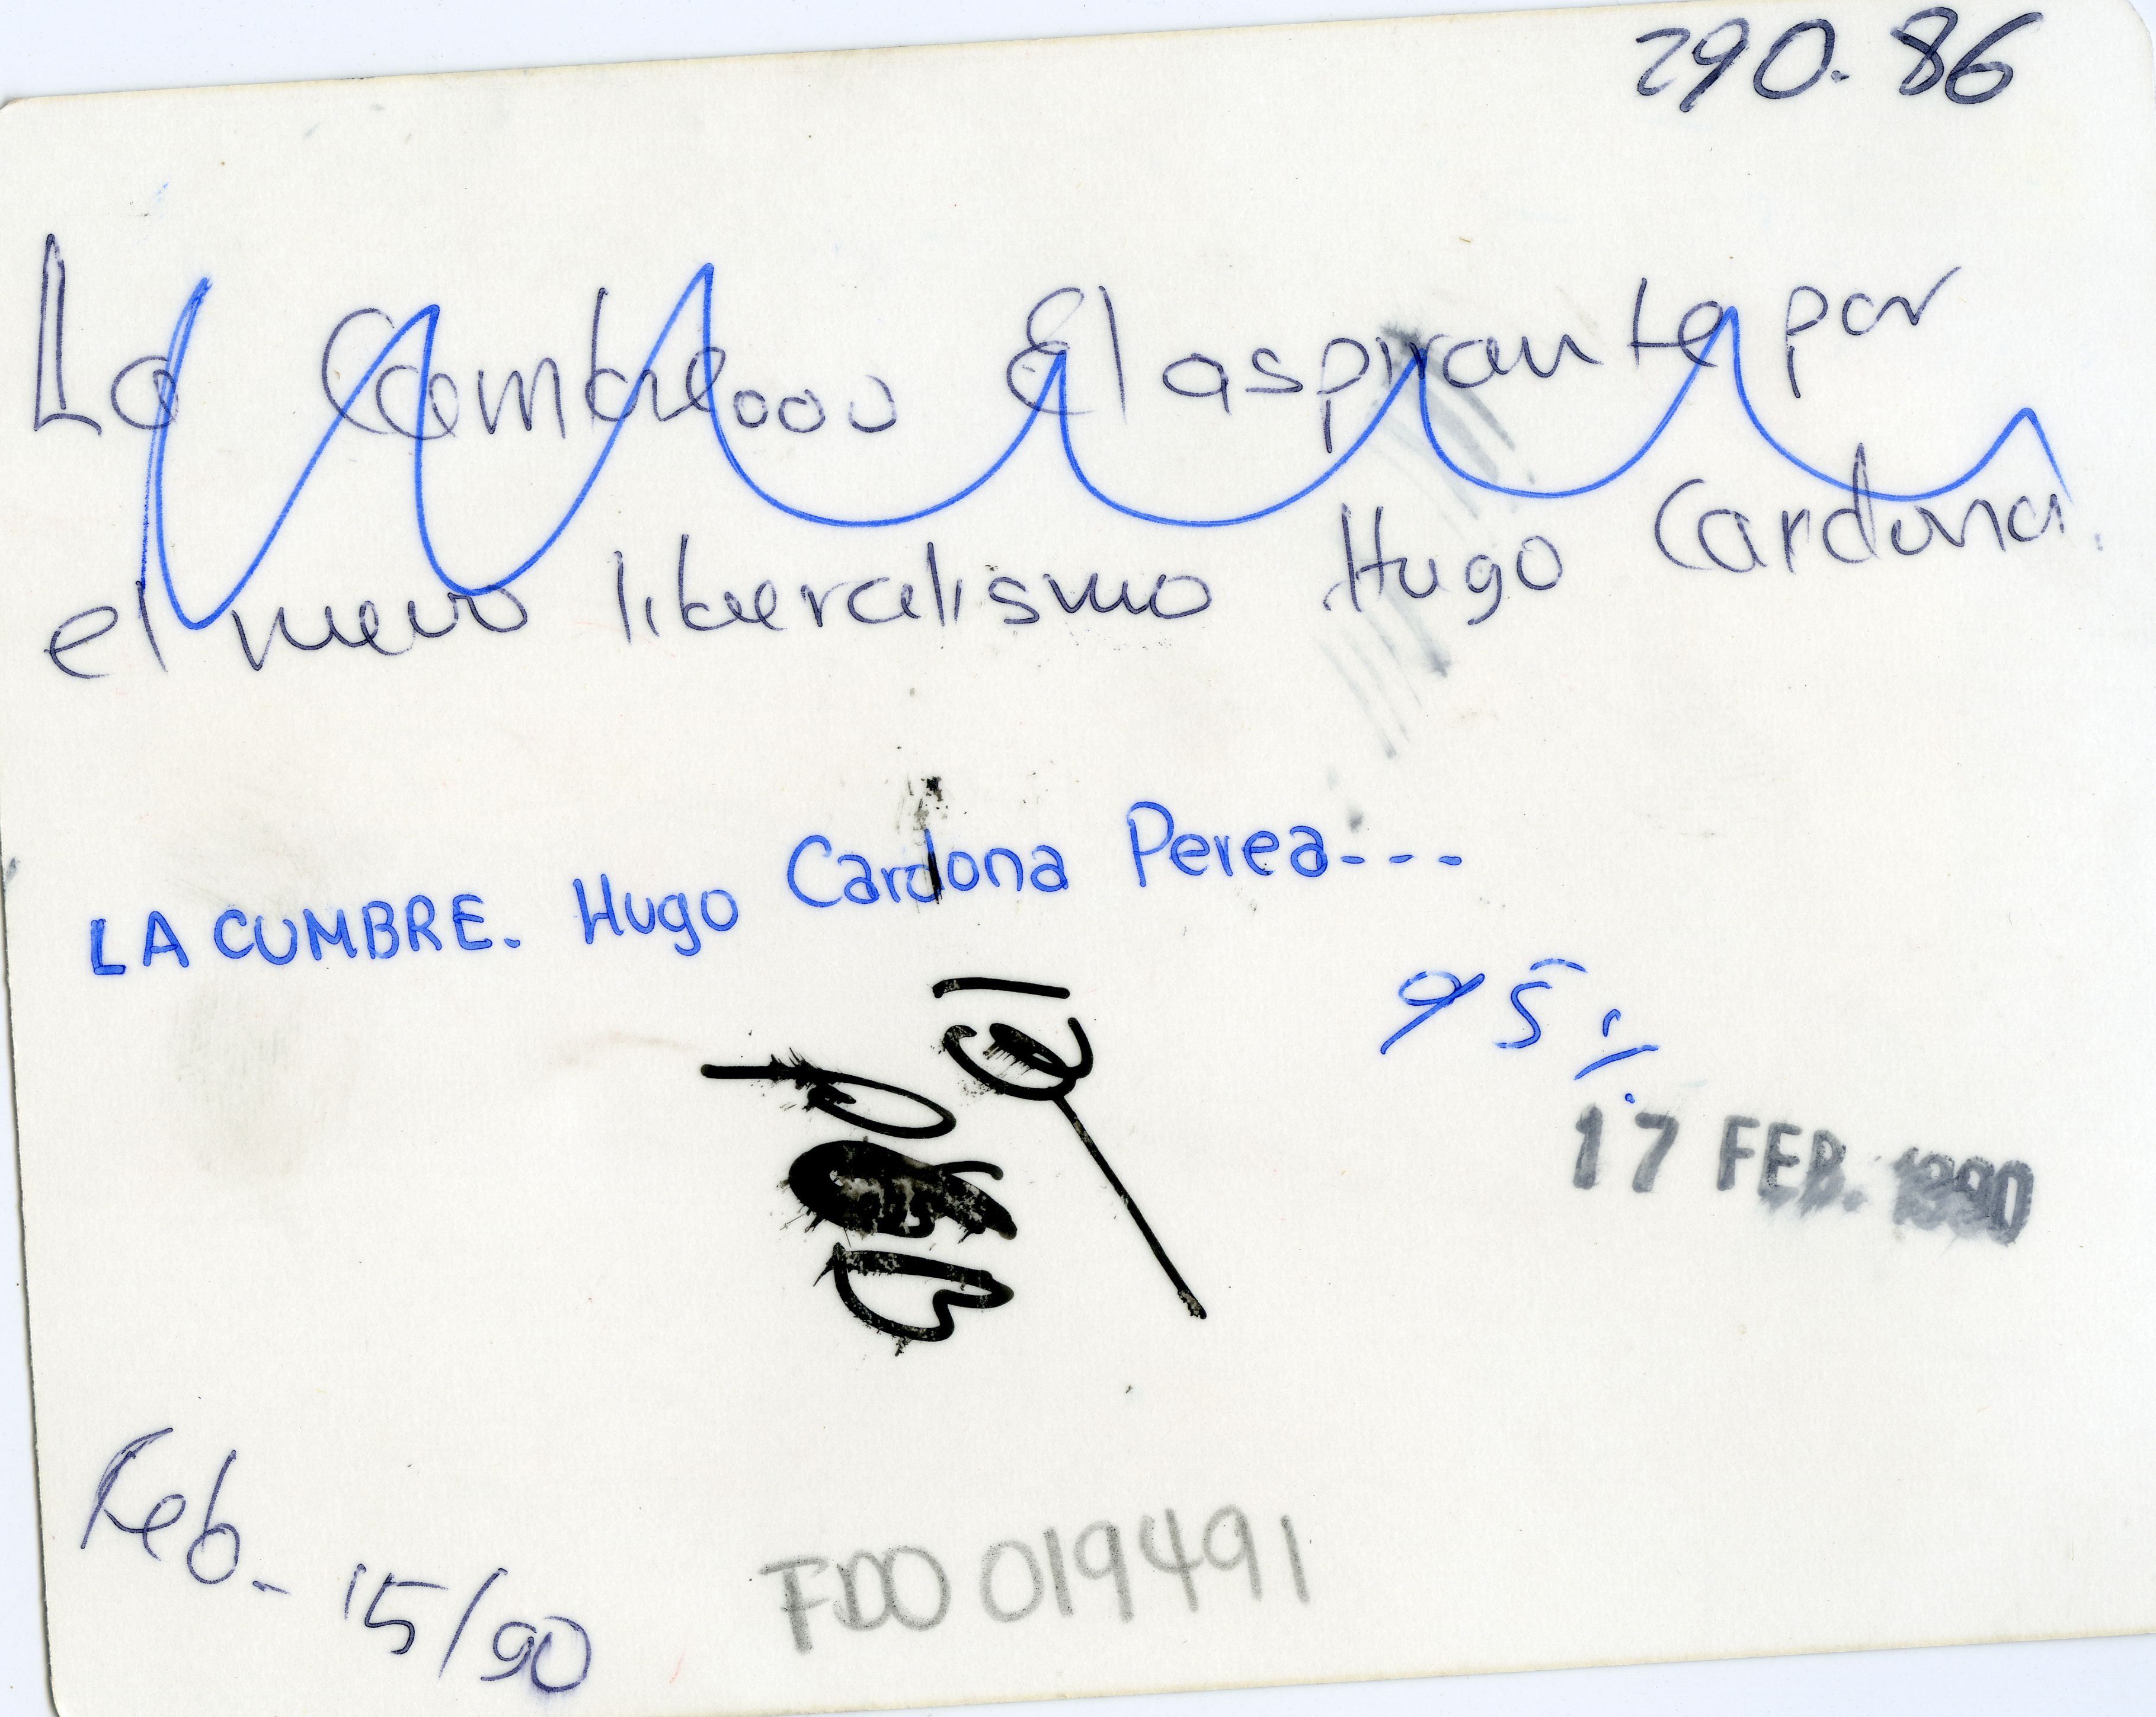 290.86
La Cumbre... El aspirante por
el nuevo liberalismo Hugo Cardona.
LA CUMBRE. Hugo Cardona Perea---
95%
17 FEB. 1990
Feb- 15/90
FDO 019491